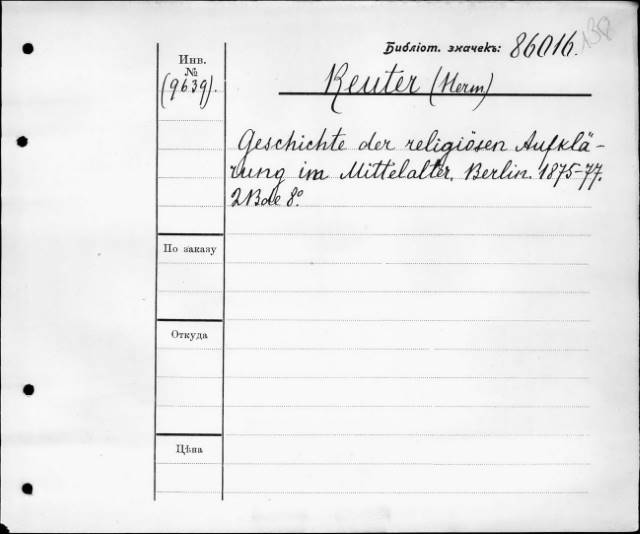 Библіот. значекъ: 86016. 138
Инв.
№
(9639).
Reuter (Herm)
Geschichte der religiösen Aufklä-
rung im Mittelalter. Berlin. 1875-77.
2 Bde 8°.
По заказу
Откуда
Цѣна